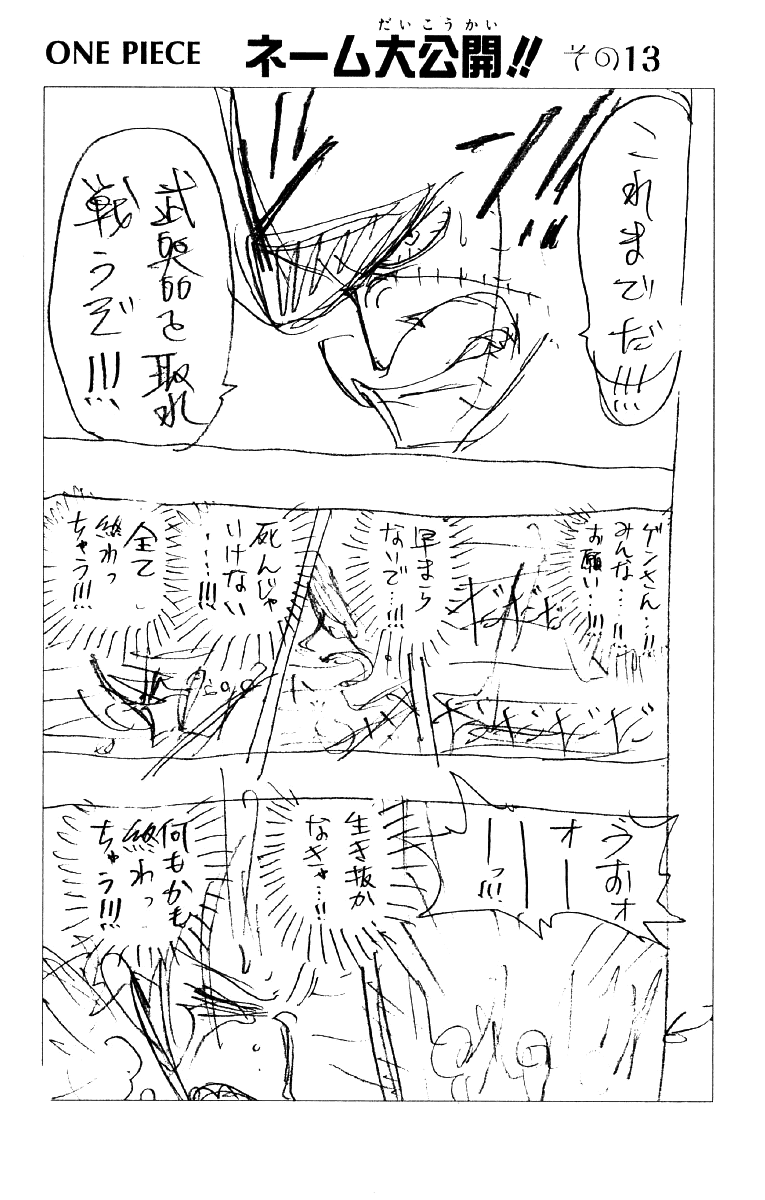 ONE PIECE ネーム大公開!! その13
だいこうかい
これまでだ!!!
武器を取れ
戦うぞ!!!
ゲンさん…!!
みんな…!!
お願い…!!!
早まら
ないで…!!!
死んじゃ
いけない
…!!!
全て
終わっ
ちゃう!!!
ダダダ
ダダダダダ
うおオ
オーー
ーっ!!!
生き抜か
なきゃ…!!
何もかも
終わっ
ちゃう!!!